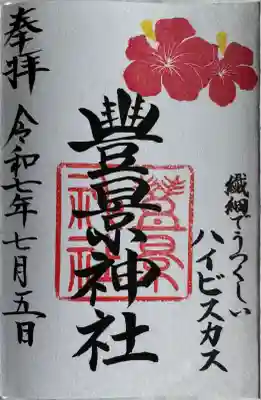 繊細でうつくしい
ハイビスカス
豊景神社
奉拝
令和七年七月五日